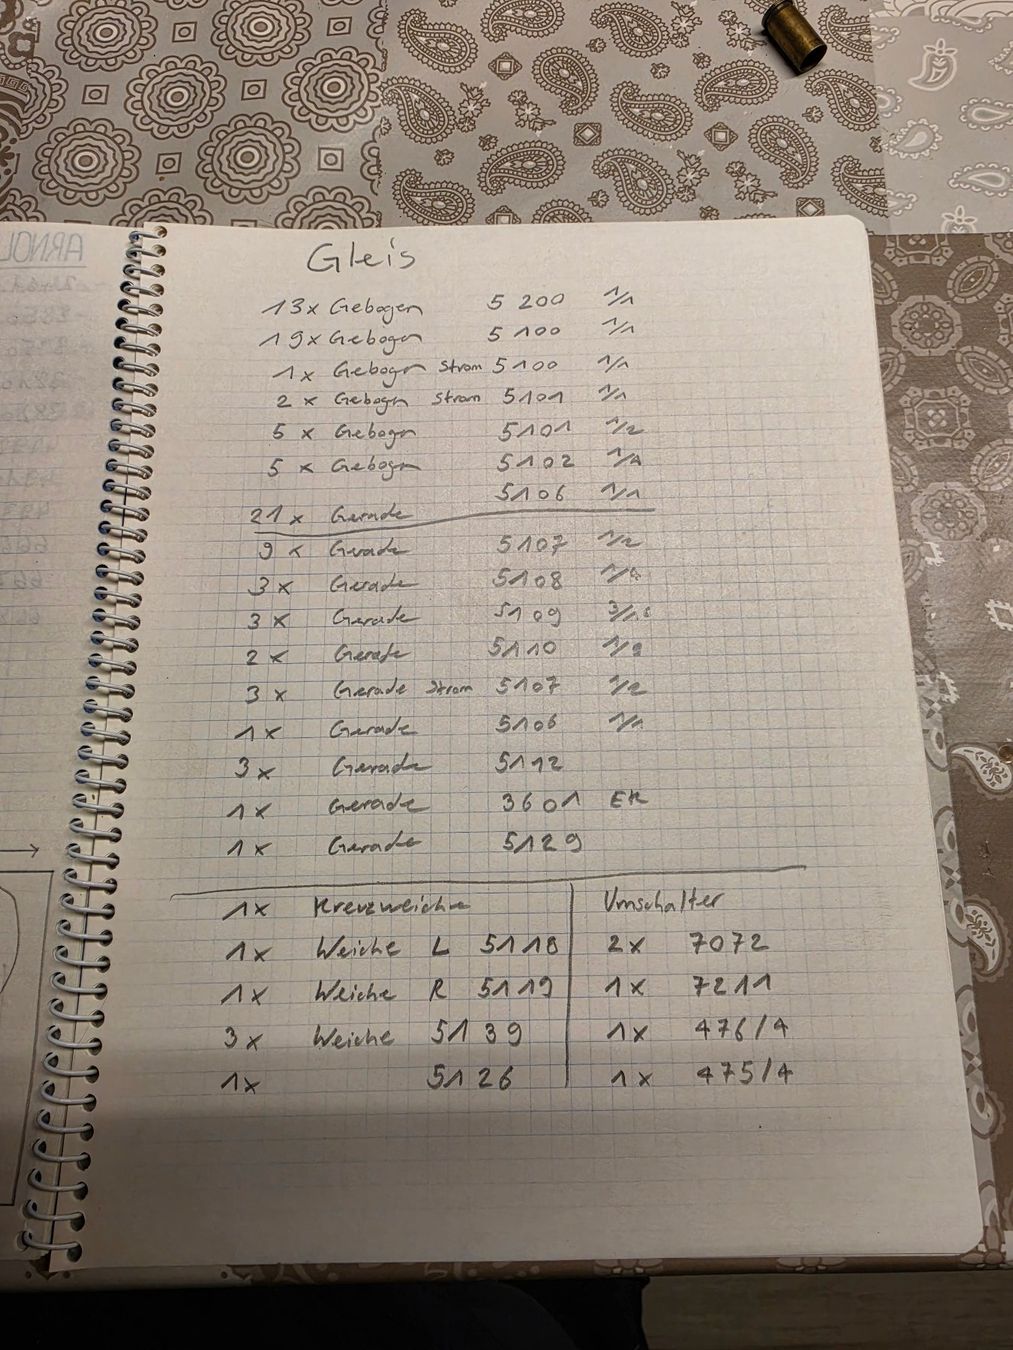 ARNOL
Gleis
13x Gebogen 5 200 1/1
19x Gebogen 5 100 1/1
1x Gebogen Strom 5100 1/1
2x Gebogen Strom 5101 1/1
5x Gebogen 5101 1/2
5x Gebogen 5102 1/4
21x Gerade 5106 1/1
9x Gerade 5107 1/2
3x Gerade 5108 1/4
3x Gerade 5109 3/16
2x Gerade 5110 1/8
3x Gerade Strom 5107 1/2
1x Gerade 5106 1/1
3x Gerade 5112
1x Gerade 3601 EK
1x Gerade 5129
1x Kreuzweiche
1x Weiche L 5118
1x Weiche R 5119
3x Weiche 5139
1x 5126
Umschalter
2x 7072
1x 7211
1x 476/4
1x 475/4